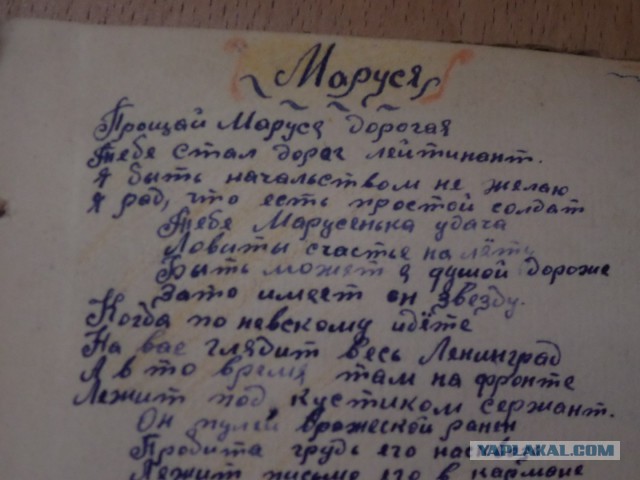 Маруся
Прощай Маруся дорогая
Тебе стал дорог лейтинант.
Я быть начальством не желаю
Я рад, что есть простой солдат
Тебе Марусенька удача
Ловиты счастье на лёту
Быть может я душой дороже
Зато имеет он звезду.
Когда по невскому идёте
На вас глядит весь Ленинград
А в то время там на фронте
Лежит под кустиком сержант.
Он пулей вражеской ранен
Пробита грудь его
Лежит письмо его в кармане
YAPLAKAL.COM